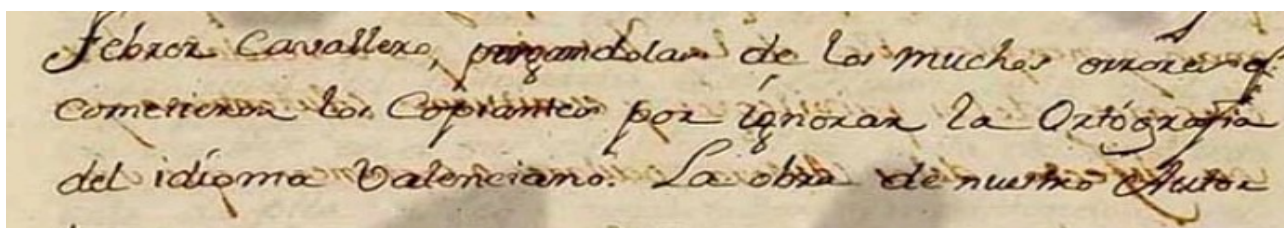 Febrer Cavallero, purgandolas de los muchos errores q.
cometieron los Copiantes por ignorar la Ortógrafia
del idioma Valenciano. La obra de nuestro Autor